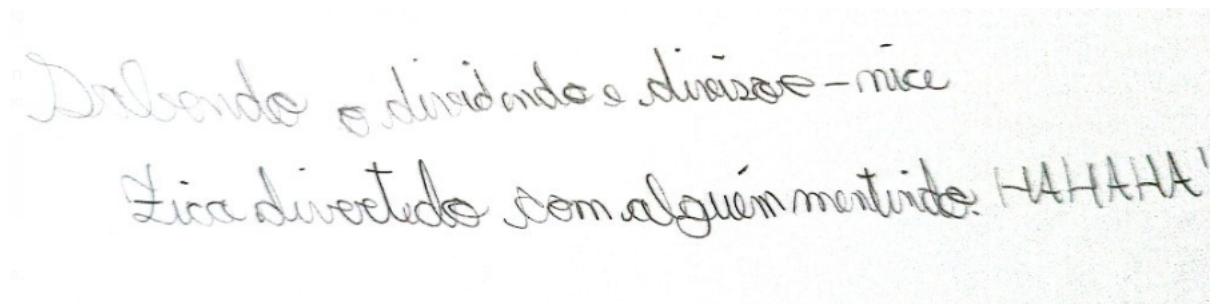 Sabendo o dividendo e divisor - nice
Fica divertido com alguém mentindo. HAHAHA!